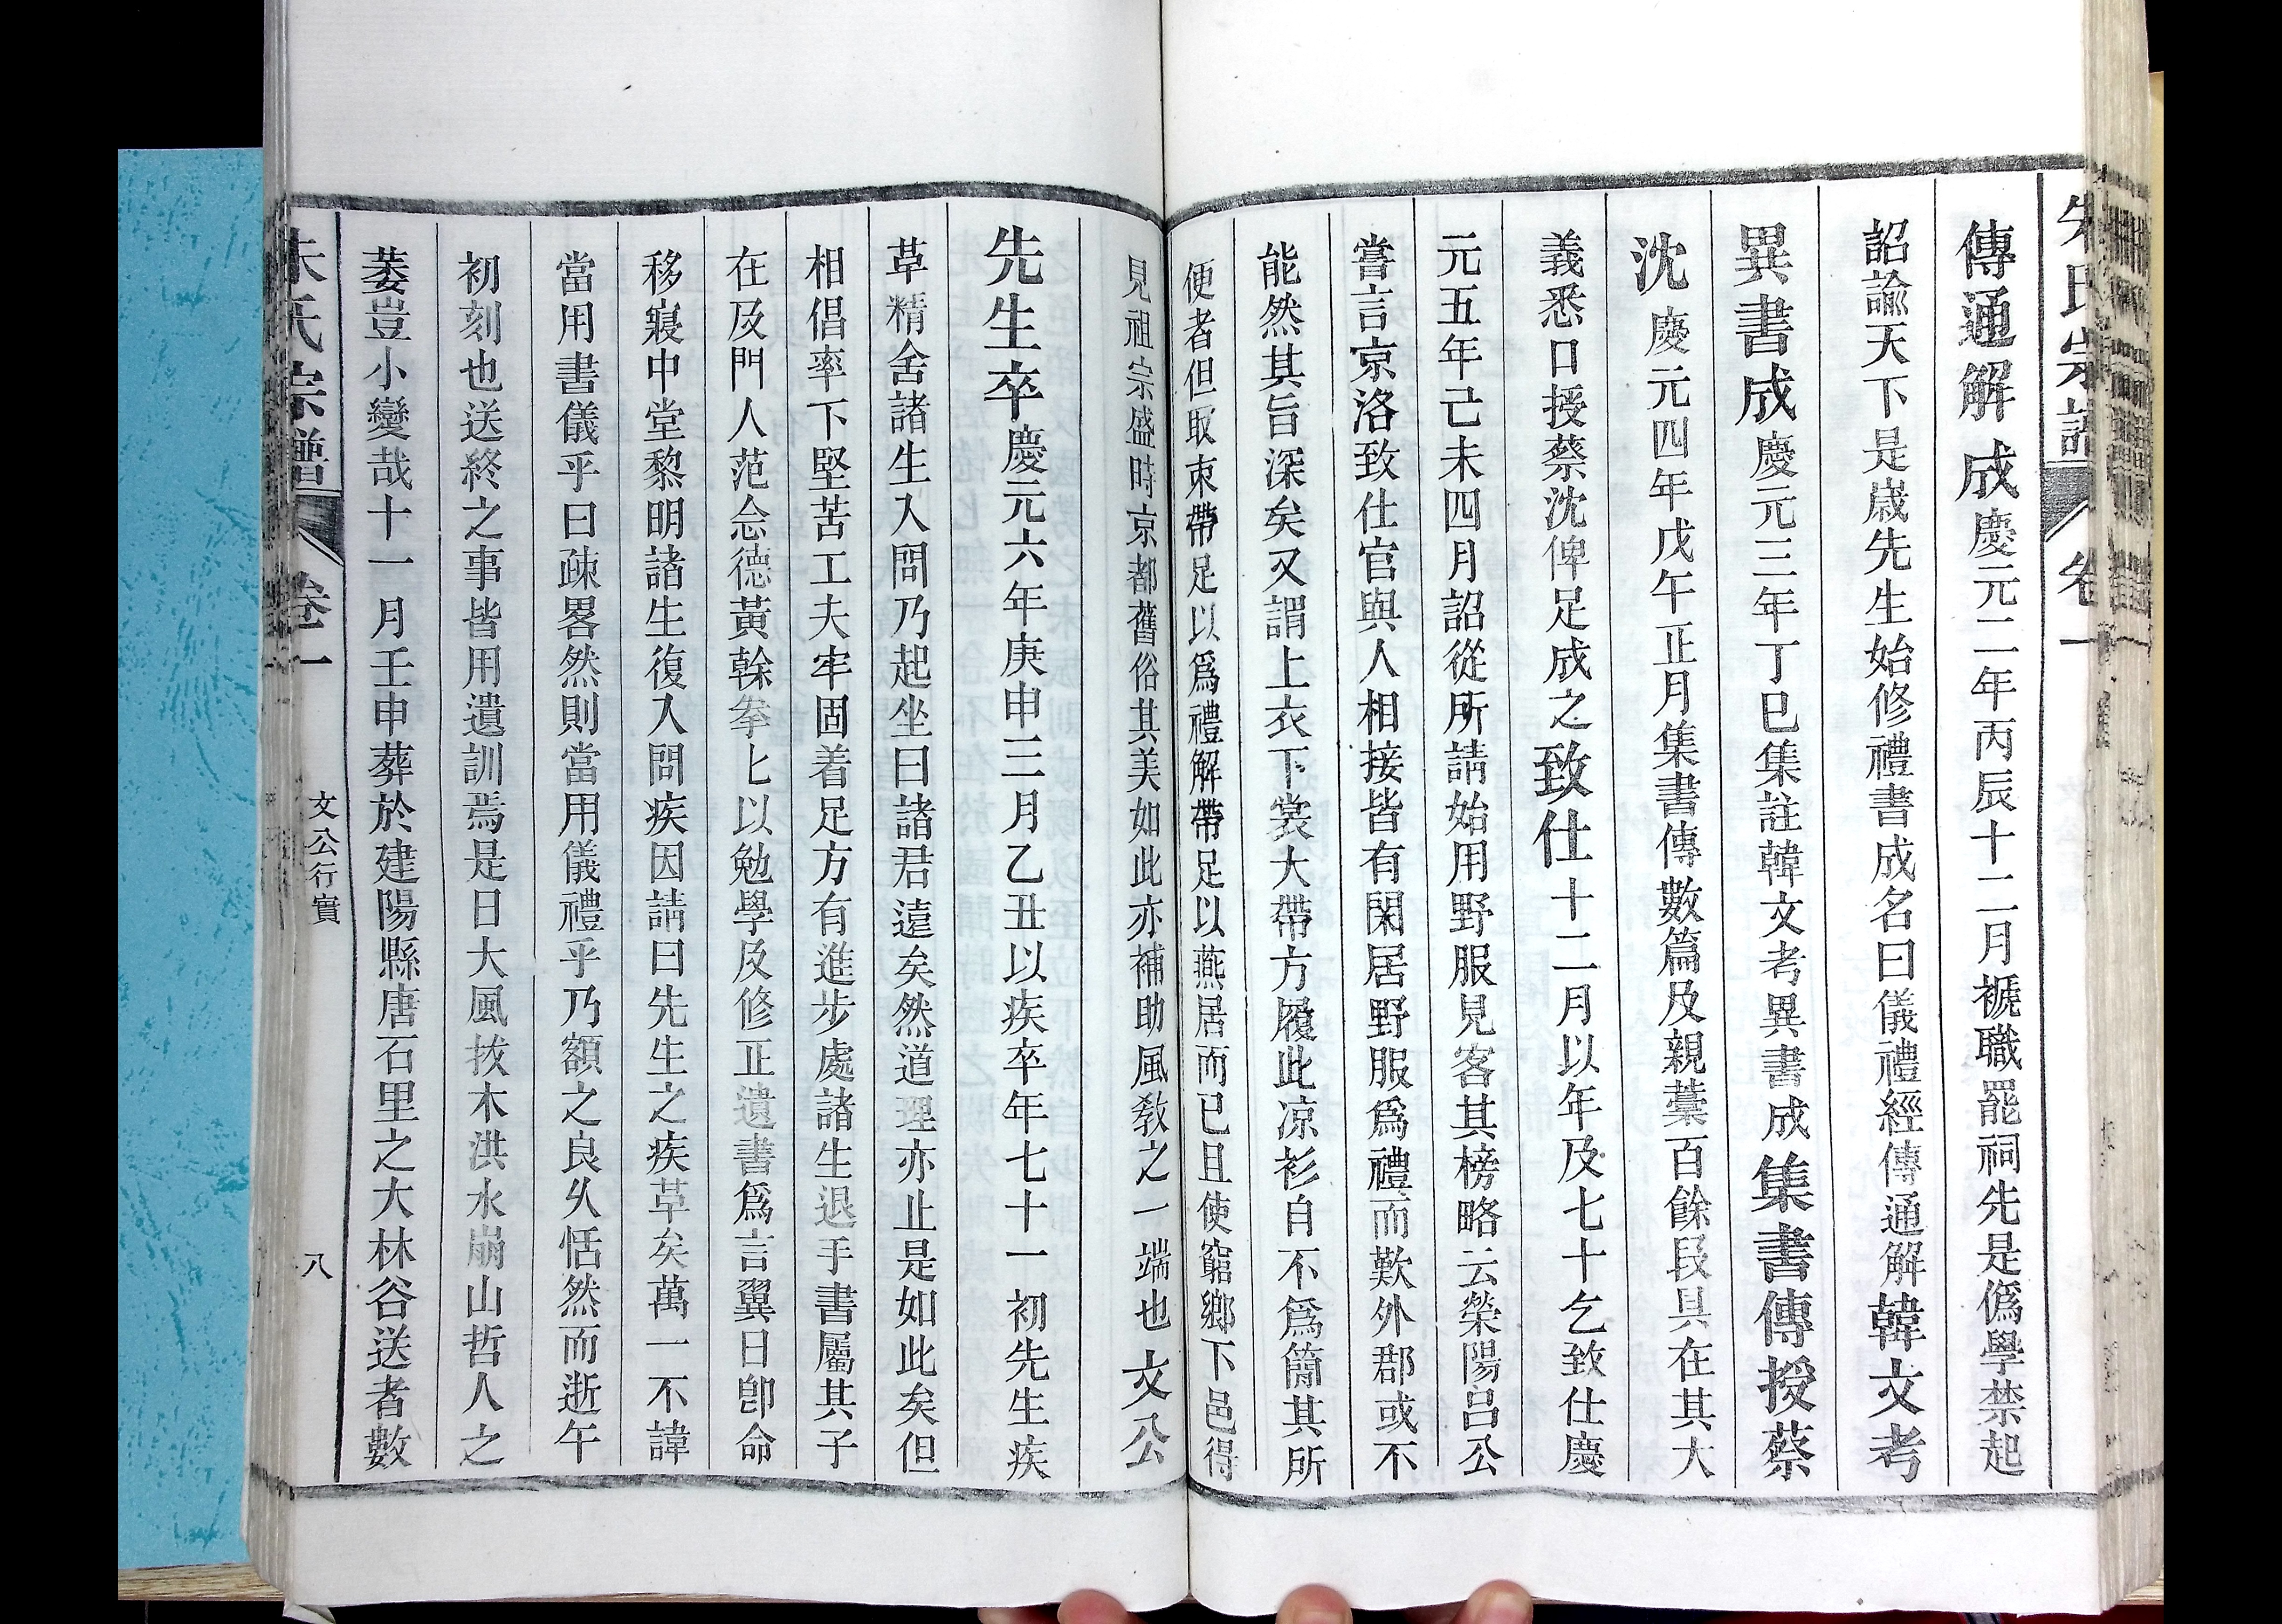 朱氏宗譜 卷一
傳通解成慶元二年丙辰十二月褫職罷祠先是僞學禁起
詔諭天下是歲先生始修禮書成名曰儀禮經傳通解韓文考
異書成慶元三年丁巳集註韓文考異書成集書傳授蔡
沈慶元四年戊午正月集書傳數篇及親藁百餘段具在其大
義悉口授蔡沈俾足成之致仕十二月以年及七十乞致仕慶
元五年己未四月詔從所請始用野服見客其榜略云榮陽呂公
嘗言京洛致仕官與人相接皆有閑居野服爲禮而歎外郡或不
能然其旨深矣又謂上衣下裳大帶方履此凉衫自不爲簡其所
便者但取束帶足以爲禮解帶足以燕居而已且使窮鄉下邑得
見祖宗盛時京都舊俗其美如此亦補助風敎之一端也文公
先生卒慶元六年庚申三月乙丑以疾卒年七十一初先生疾
草精舍諸生入問乃起坐曰諸君遠矣然道理亦止是如此矣但
相倡率下堅苦工夫牢固着足方有進步處諸生退手書屬其子
在及門人范念德黃榦拳匕以勉學及修正遺書爲言翼日卽命
移寢中堂黎明諸生復入問疾因請曰先生之疾草矣萬一不諱
當用書儀乎曰疎畧然則當用儀禮乎乃額之良乆恬然而逝午
初刻也送終之事皆用遺訓焉是日大風拔木洪水崩山哲人之
萎豈小變哉十一月壬申葬於建陽縣唐石里之大林谷送者數
朱氏宗譜 卷一 文公行實 八